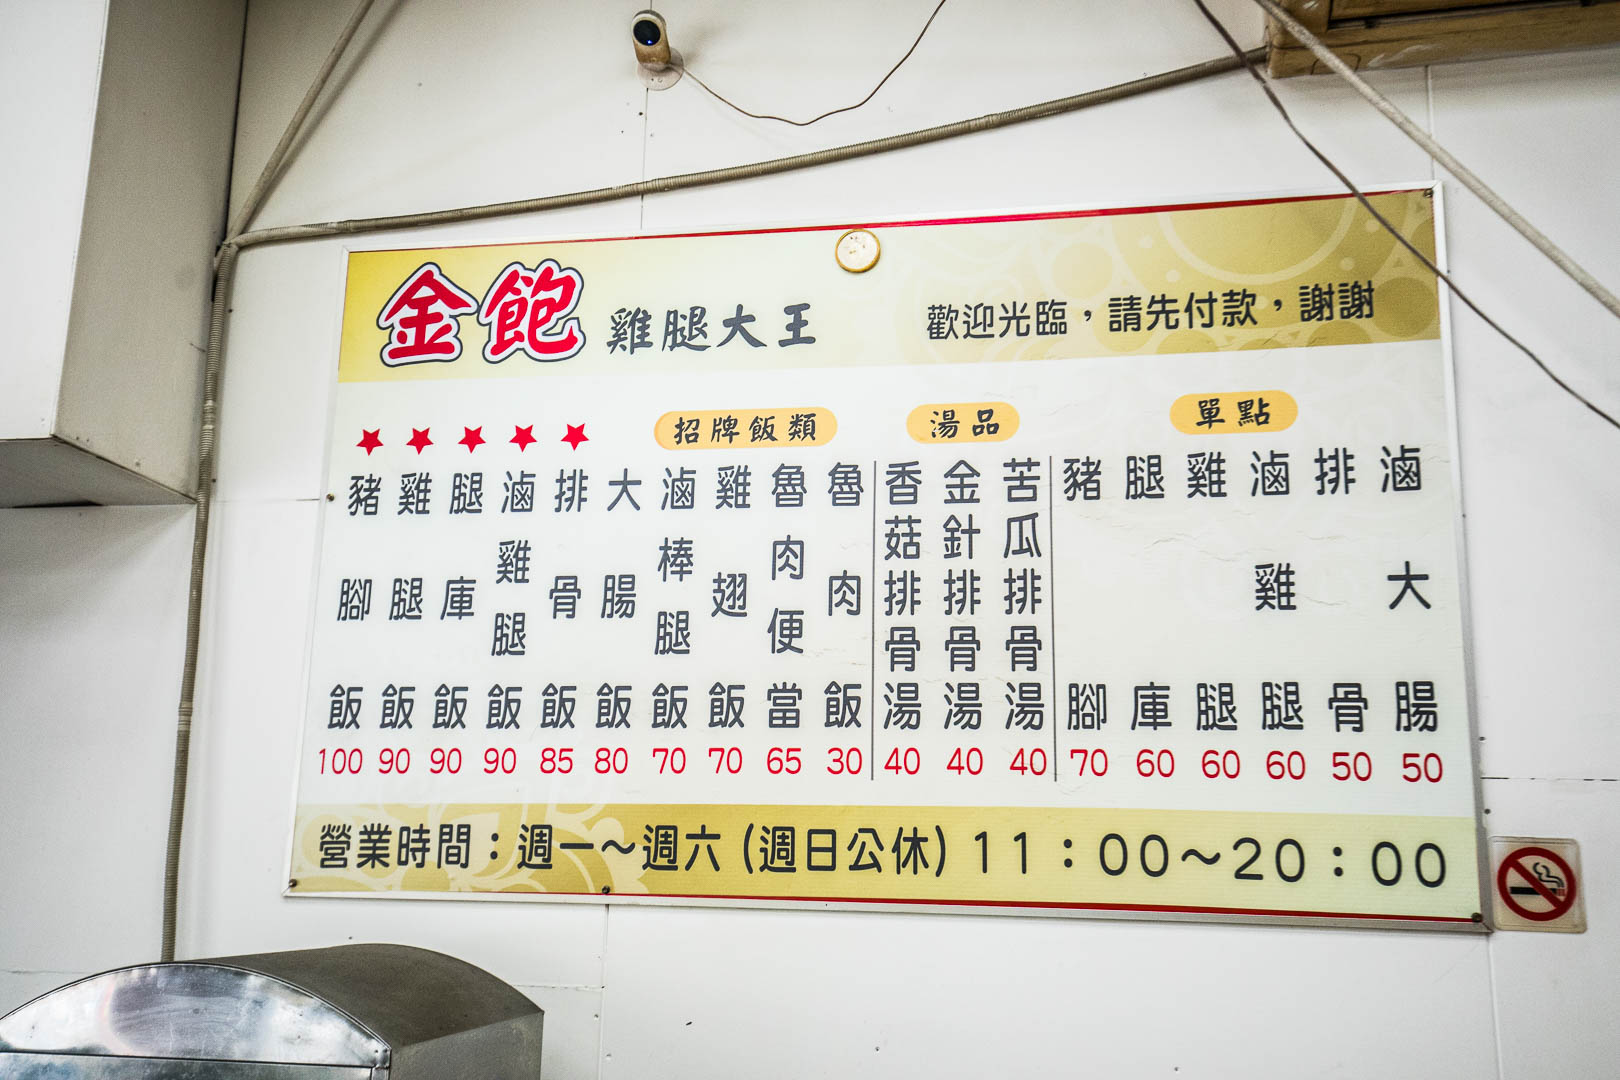 金飽 雞腿大王 歡迎光臨，請先付款，謝謝
招牌飯類
豬腳飯 100
雞腿飯 90
腿庫飯 90
滷雞腿飯 90
排骨飯 85
大腸飯 80
滷棒腿飯 70
雞翅飯 70
魯肉便當 65
魯肉飯 30
湯品
香菇排骨湯 40
金針排骨湯 40
苦瓜排骨湯 40
單點
豬腳 70
腿庫 60
雞腿 60
滷雞腿 60
排骨 50
滷大腸 50
營業時間：週一～週六 (週日公休) 11：00～20：00